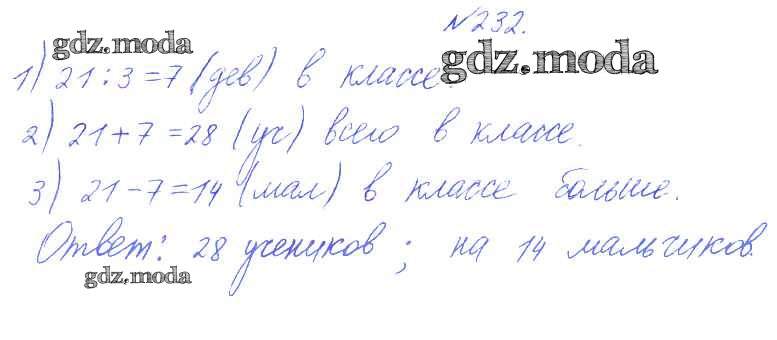 №232.
gdz.moda
1) 21:3=7 (дев) в классе.
gdz.moda
2) 21+7=28 (уч) всего в классе.
3) 21-7=14 (мал) в классе больше.
Ответ: 28 учеников; на 14 мальчиков.
gdz.moda